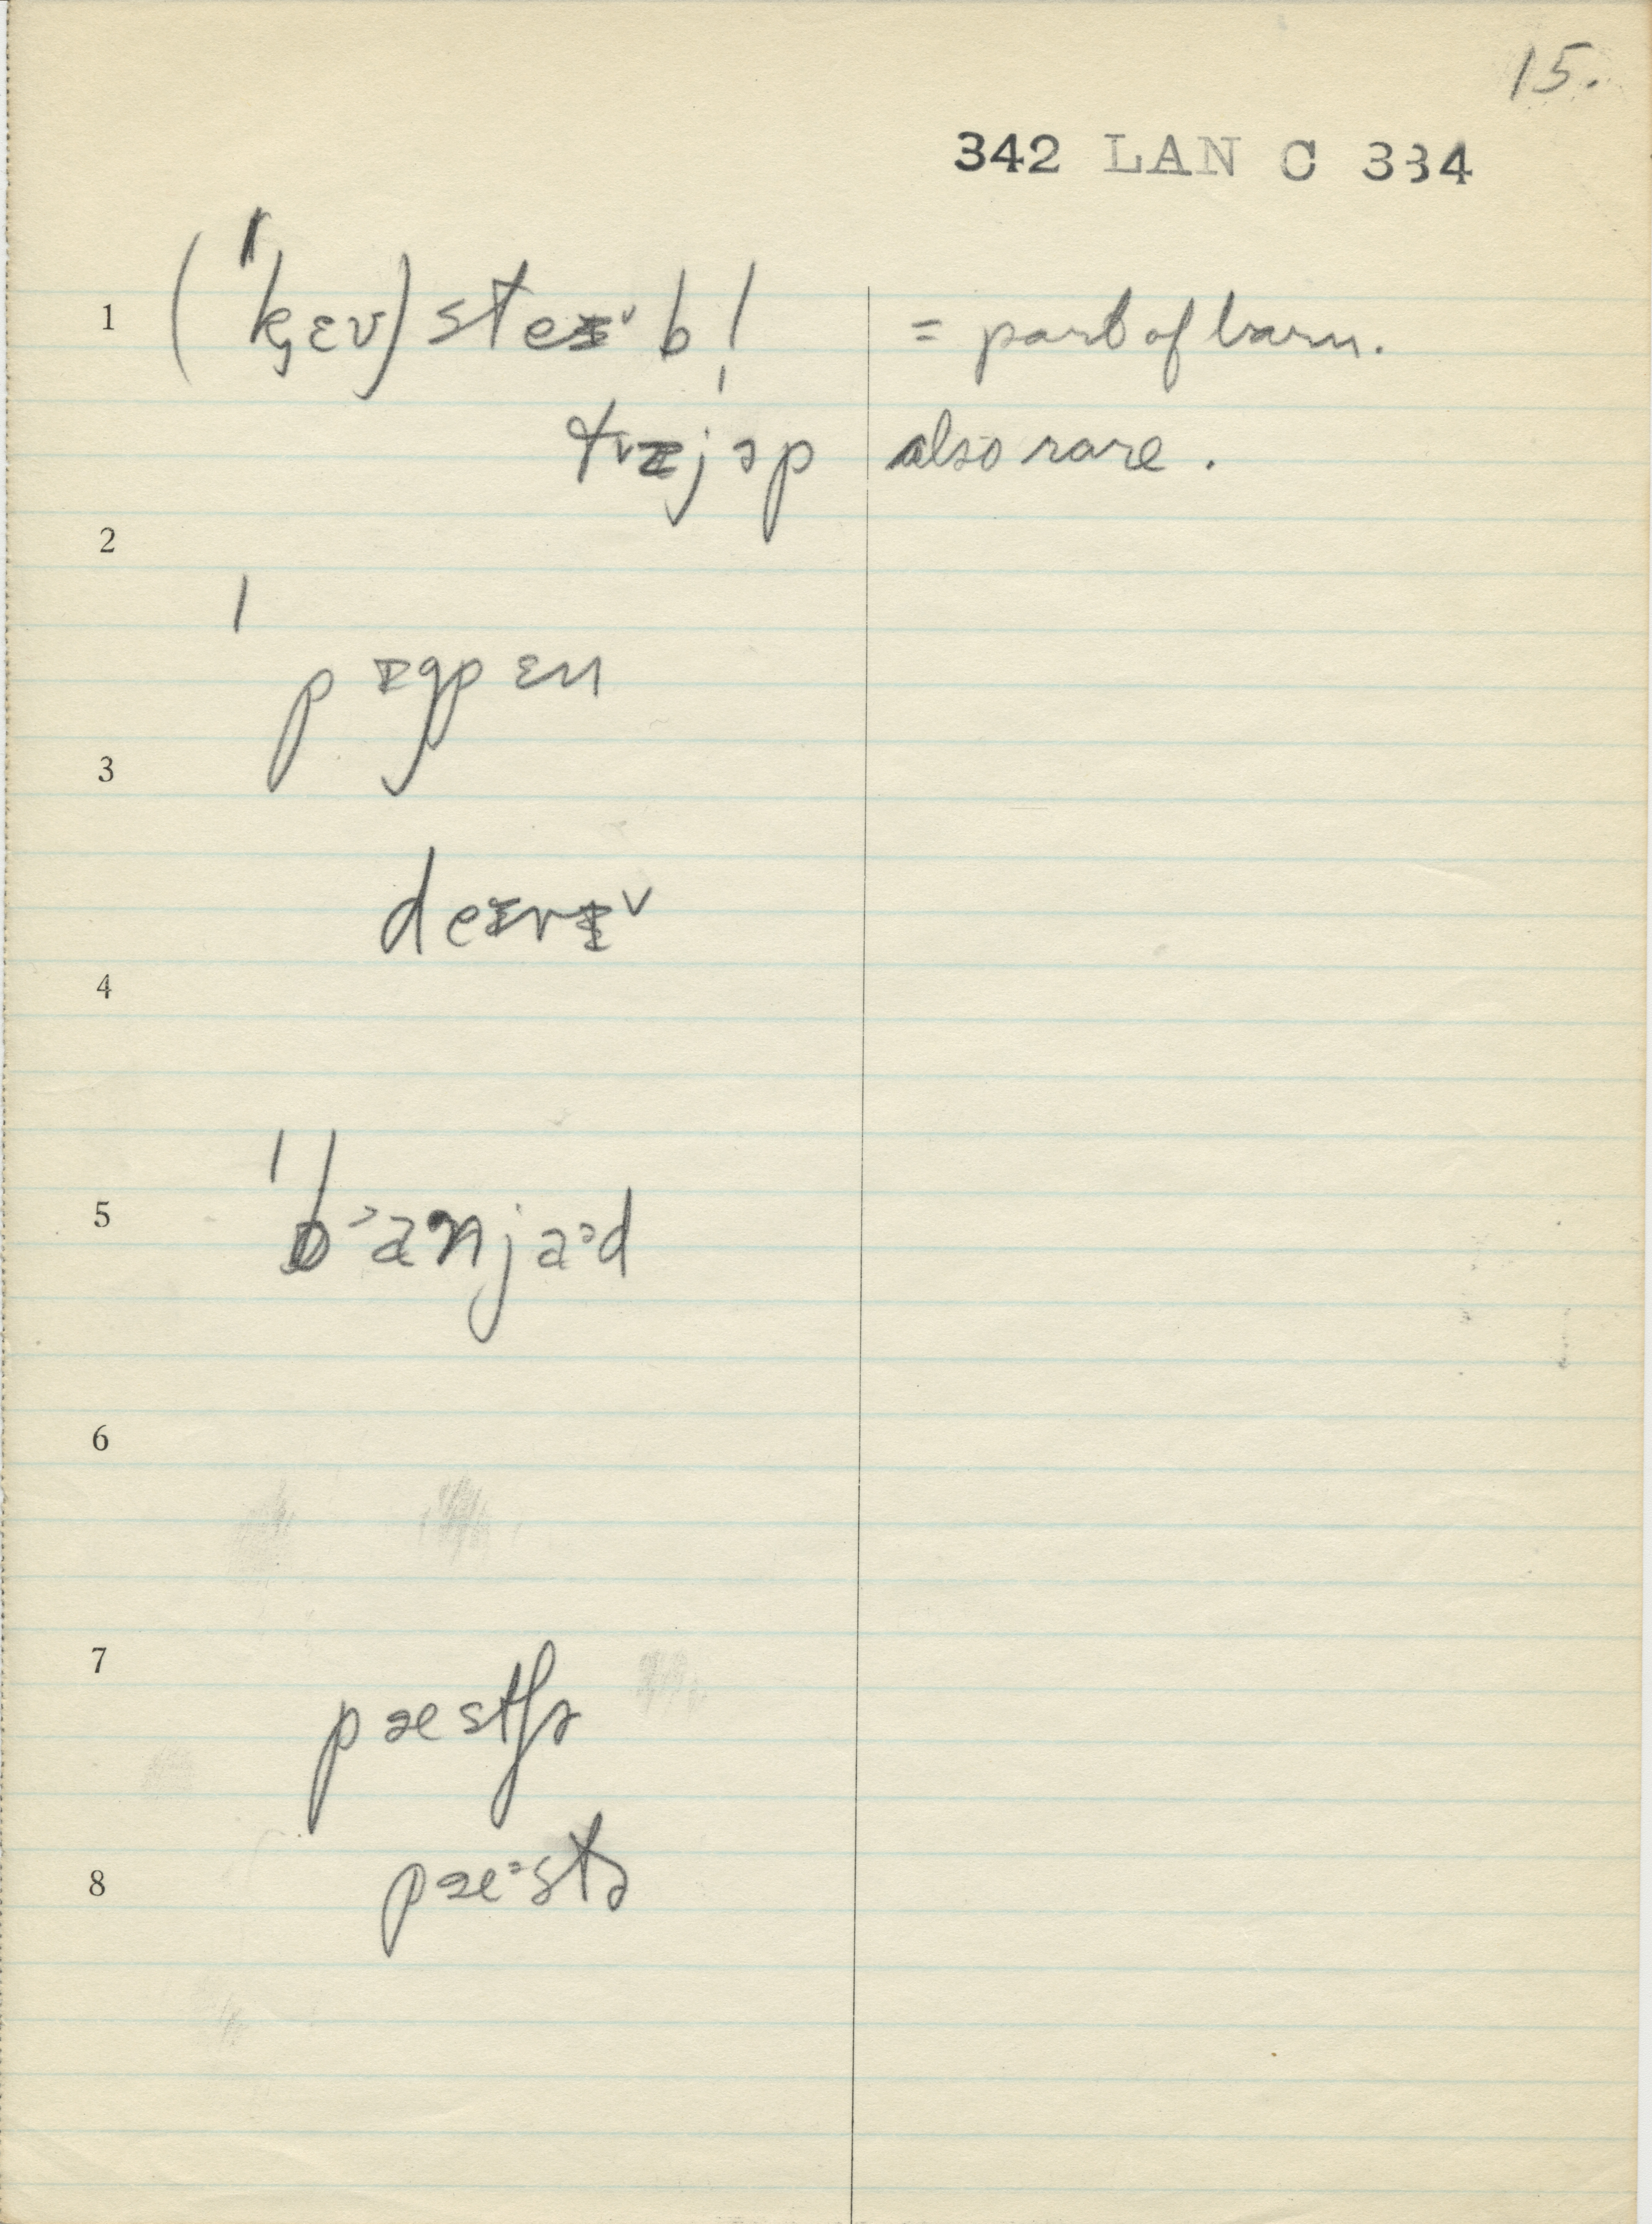 15.
342 LAN C 334
1 (ˈk̟ɛv) steɪ˅bl̩ = part of barn.
tɪ˅jəp also rare.
2
ˈpɪgpɛn
3
deɪrɪ˅
4
5 ˈb˃anjaᵊd
6
7
pæstʃɚ
8 pæᵊstɚ